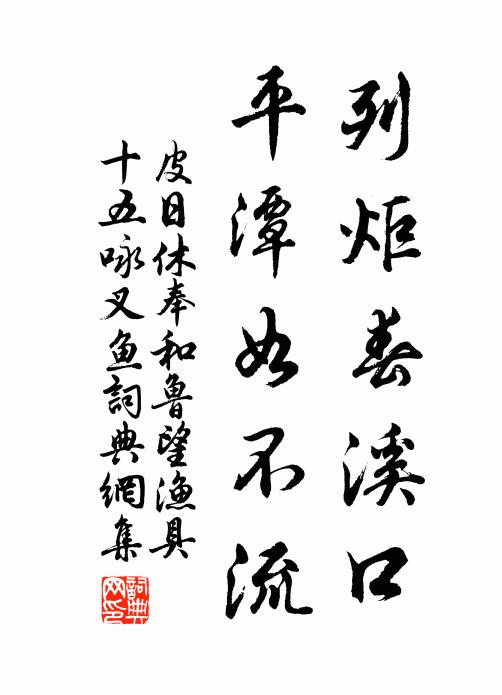 列炬春溪口
平潭如不流
皮日休奉和魯望漁具
十五咏叉魚詞典網集
詞典
网印